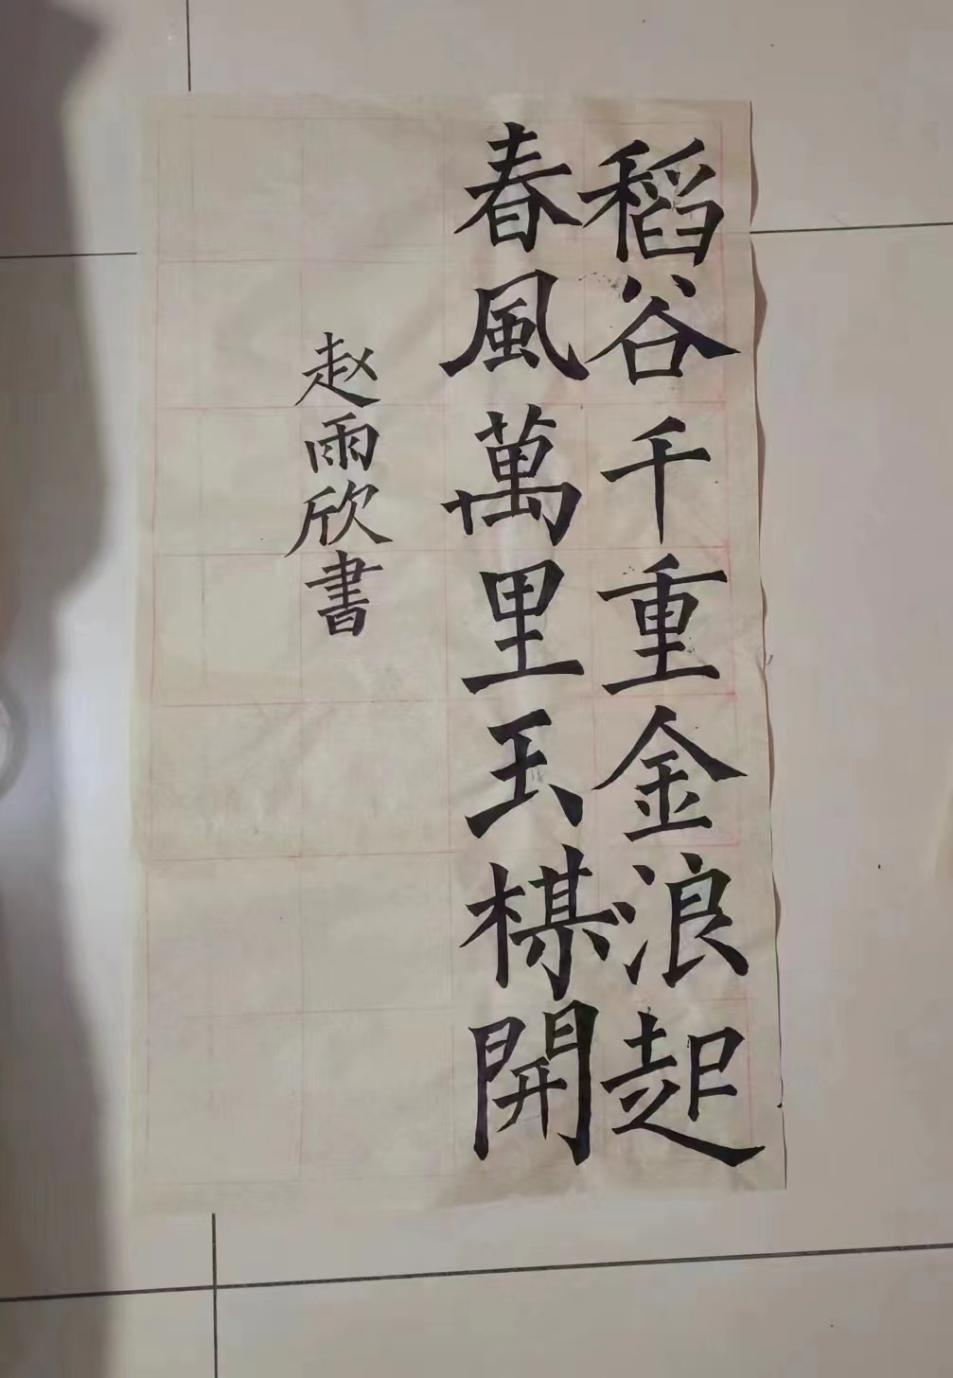 稻谷千重金浪起
春風萬里玉棋開
赵雨欣書